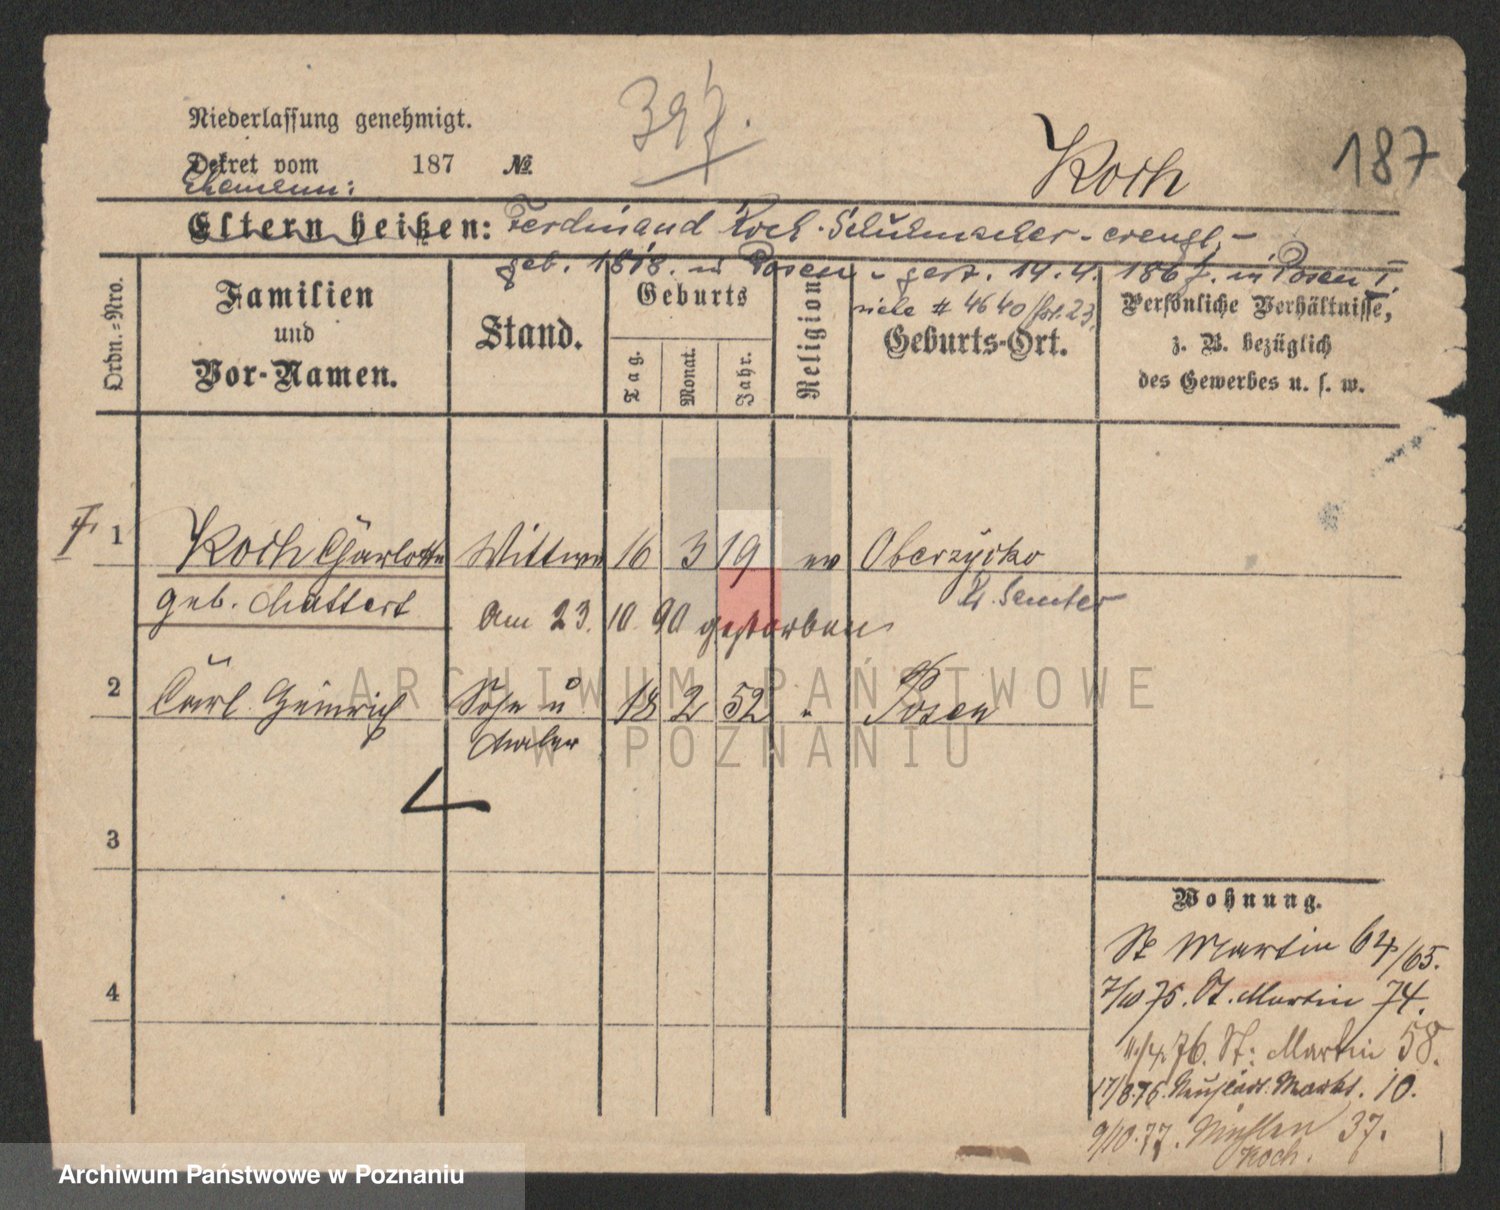 Niederlassung genehmigt.
Dekret vom 187 №
397.
Koch
187
Ehemann:
Eltern heißen: Ferdinand Koch. Schuhmacher - evengl. -
geb. 1818. in Posen - gest. 14. 4. 1867. in Posen I.
siehe # 4640
Ordn.-Nro.
Familien und Vor-Namen.
Stand.
Geburts
Tag.
Monat.
Jahr.
Religion
Geburts-Ort.
Persönliche Verhältnisse,
z. B. bezüglich
des Gewerbes u. s. w.
1 Koch Charlotte Wittwe 16 3 19 ev Oberzycko
geb. Mattert Kr. Samter
Am 23. 10 90 gestorben
2 Carl Heinrich Sohn u 18 2 52 " Posen
Maler
3
4
Wohnung.
St Martin 64/65.
7/10 75. St. Martin 74.
11/4 76. St. Martin 58.
17/8.76. Neustädt. Markt. 10.
9/10.77. Mühlen 37.
Koch.
ARCHIWUM PAŃSTWOWE
W POZNANIU
Archiwum Państwowe w Poznaniu